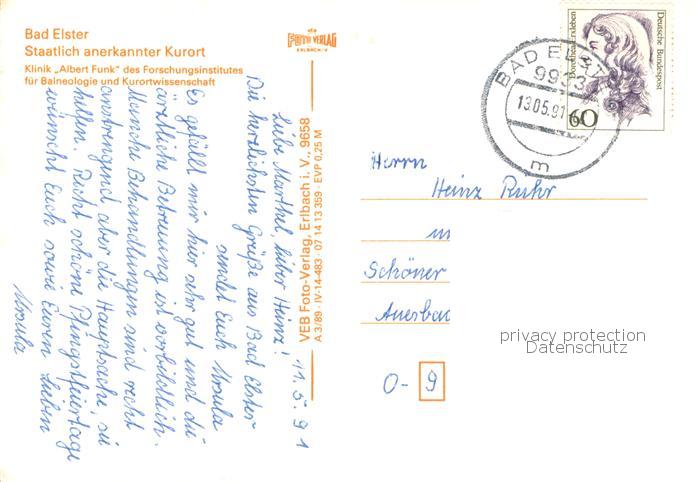 Bad Elster
Staatlich anerkannter Kurort
Klinik „Albert Funk" des Forschungsinstitutes
für Balneologie und Kurortwissenschaft
FOTO VERLAG
ERLBACH/V.
VEB Foto-Verlag, Erlbach i. V., 9658
A 3/89 · IV-14-483 · 07 14 13 359 · EVP 0,25 M
11.5.91
Liebe Marthel, lieber Heinz!
Die herzlichsten Grüße aus Bad Elster
sendet Euch Ursula
Es gefällt mir hier sehr gut und die
ärztliche Betreuung ist vorbildlich.
Manche Behandlungen sind recht
anstrengend aber die Hauptsache, sie
helfen. Recht schöne Pfingstfeiertage
wünscht Euch sowie Euren Lieben
Ursula
Dorothea Erxleben
Deutsche Bundespost
60
BAD ELST
9933
13.05.91
m
Herrn
Heinz Ruhr
Schöner
Auerbac
O- 9
privacy protection
Datenschutz